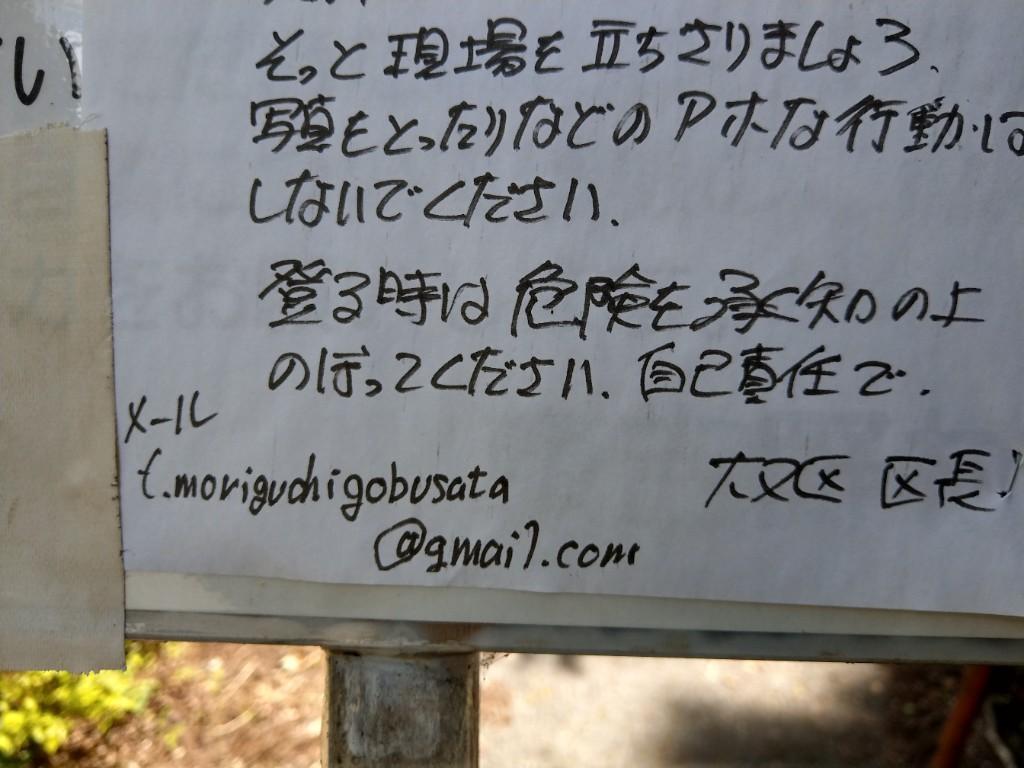 い
そっと現場を立ちさりましょう、
写真をとったりなどのアホな行動は
しないでください、
登る時は危険を承知の上
のぼってください、自己責任で、
メール
t.moriguchigobusata
@gmail.com
区 区長